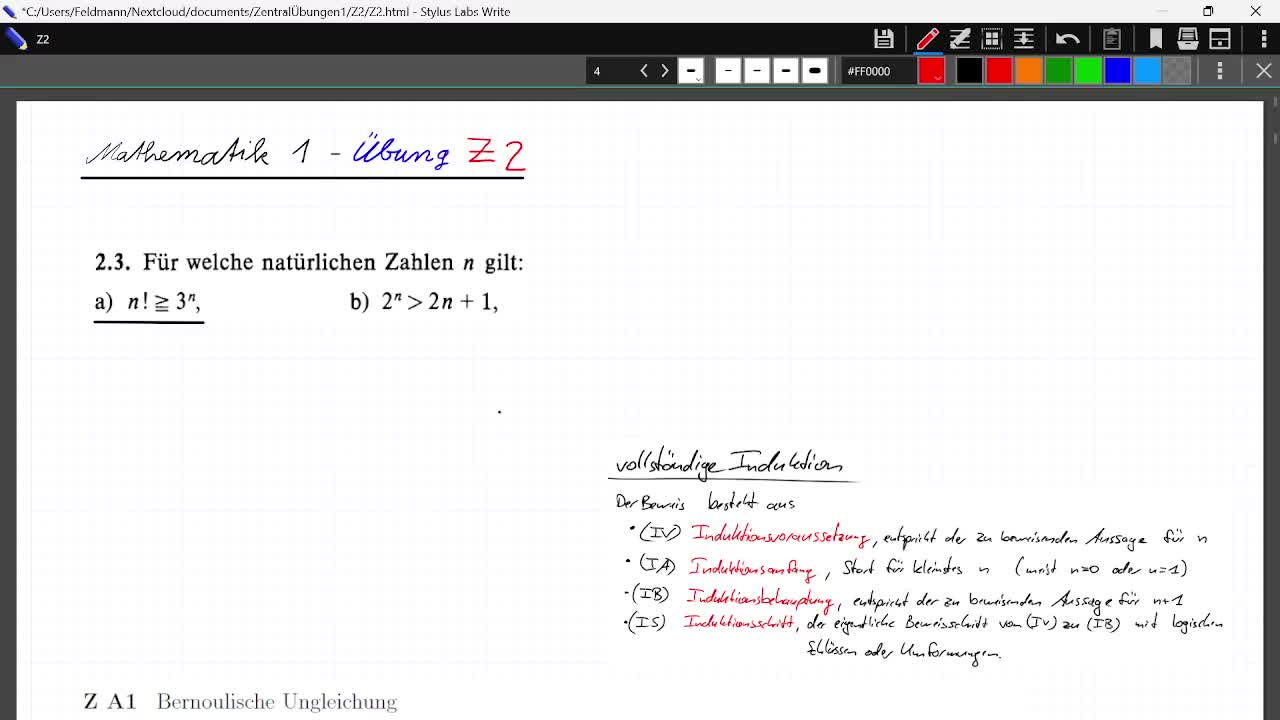 *C:/Users/Feldmann/Nextcloud/documents/ZentralÜbungen1/Z2/Z2.html - Stylus Labs Write
Z2
4
#FF0000
Mathematik 1 - Übung Z2
2.3. Für welche natürlichen Zahlen n gilt:
a) n! ≧ 3ⁿ, b) 2ⁿ > 2n + 1,
vollständige Induktion
Der Beweis besteht aus
• (IV) Induktionsvoraussetzung, entspricht der zu beweisenden Aussage für n
• (IA) Induktionsanfang, Start für kleinstes n (meist n=0 oder n=1)
• (IB) Induktionsbehauptung, entspricht der zu beweisenden Aussage für n+1
• (IS) Induktionsschritt, der eigentliche Beweisschritt von (IV) zu (IB) mit logischen
Schlüssen oder Umformungen.
Z A1 Bernoulische Ungleichung